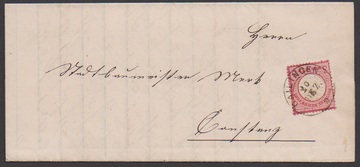 Herrn
Stadtbaumeister Merk
Constanz